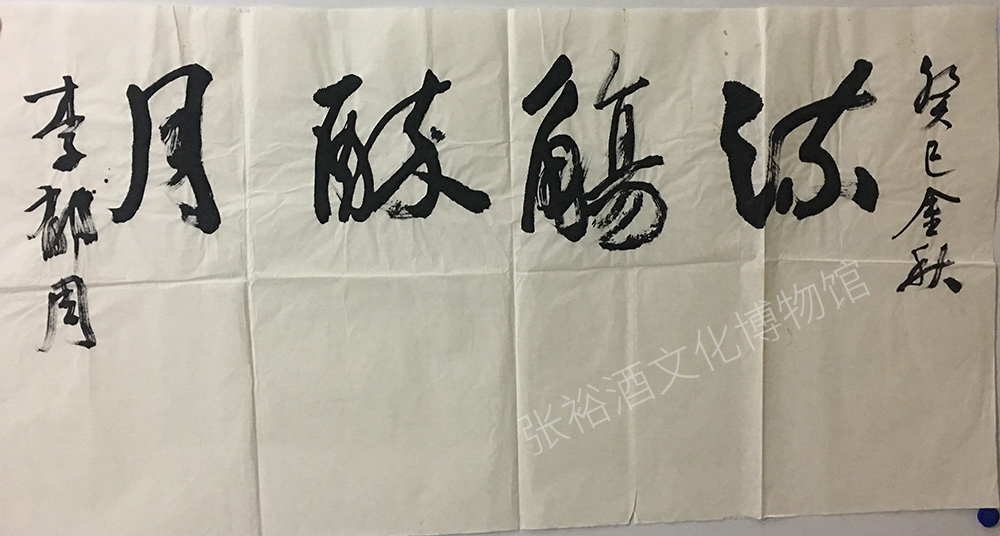 癸巳金秋
流觴醉月
李郁周
张裕酒文化博物馆